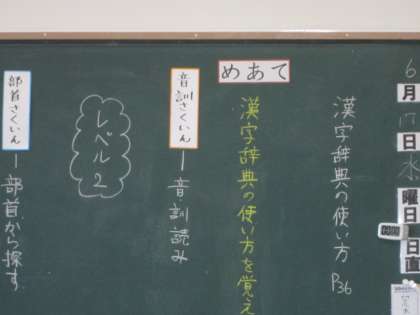 6月17日水曜日
日直
漢字辞典の使い方 P36
めあて
漢字辞典の使い方を覚え
音訓さくいん
ー音訓読み
レベル2
部首さくいん
ー部首から探す